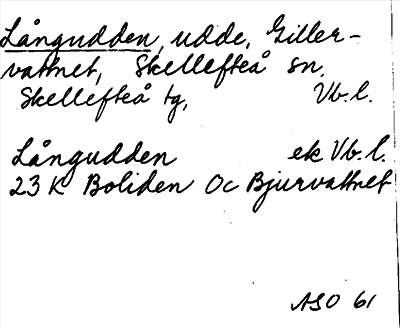 Långudden, udde, Giller-
vattnet, Skellefteå sn,
Skellefteå tg, Vb. l.
Långudden ek Vb. l.
23 K Boliden Oc Bjurvattnet
ASO 61